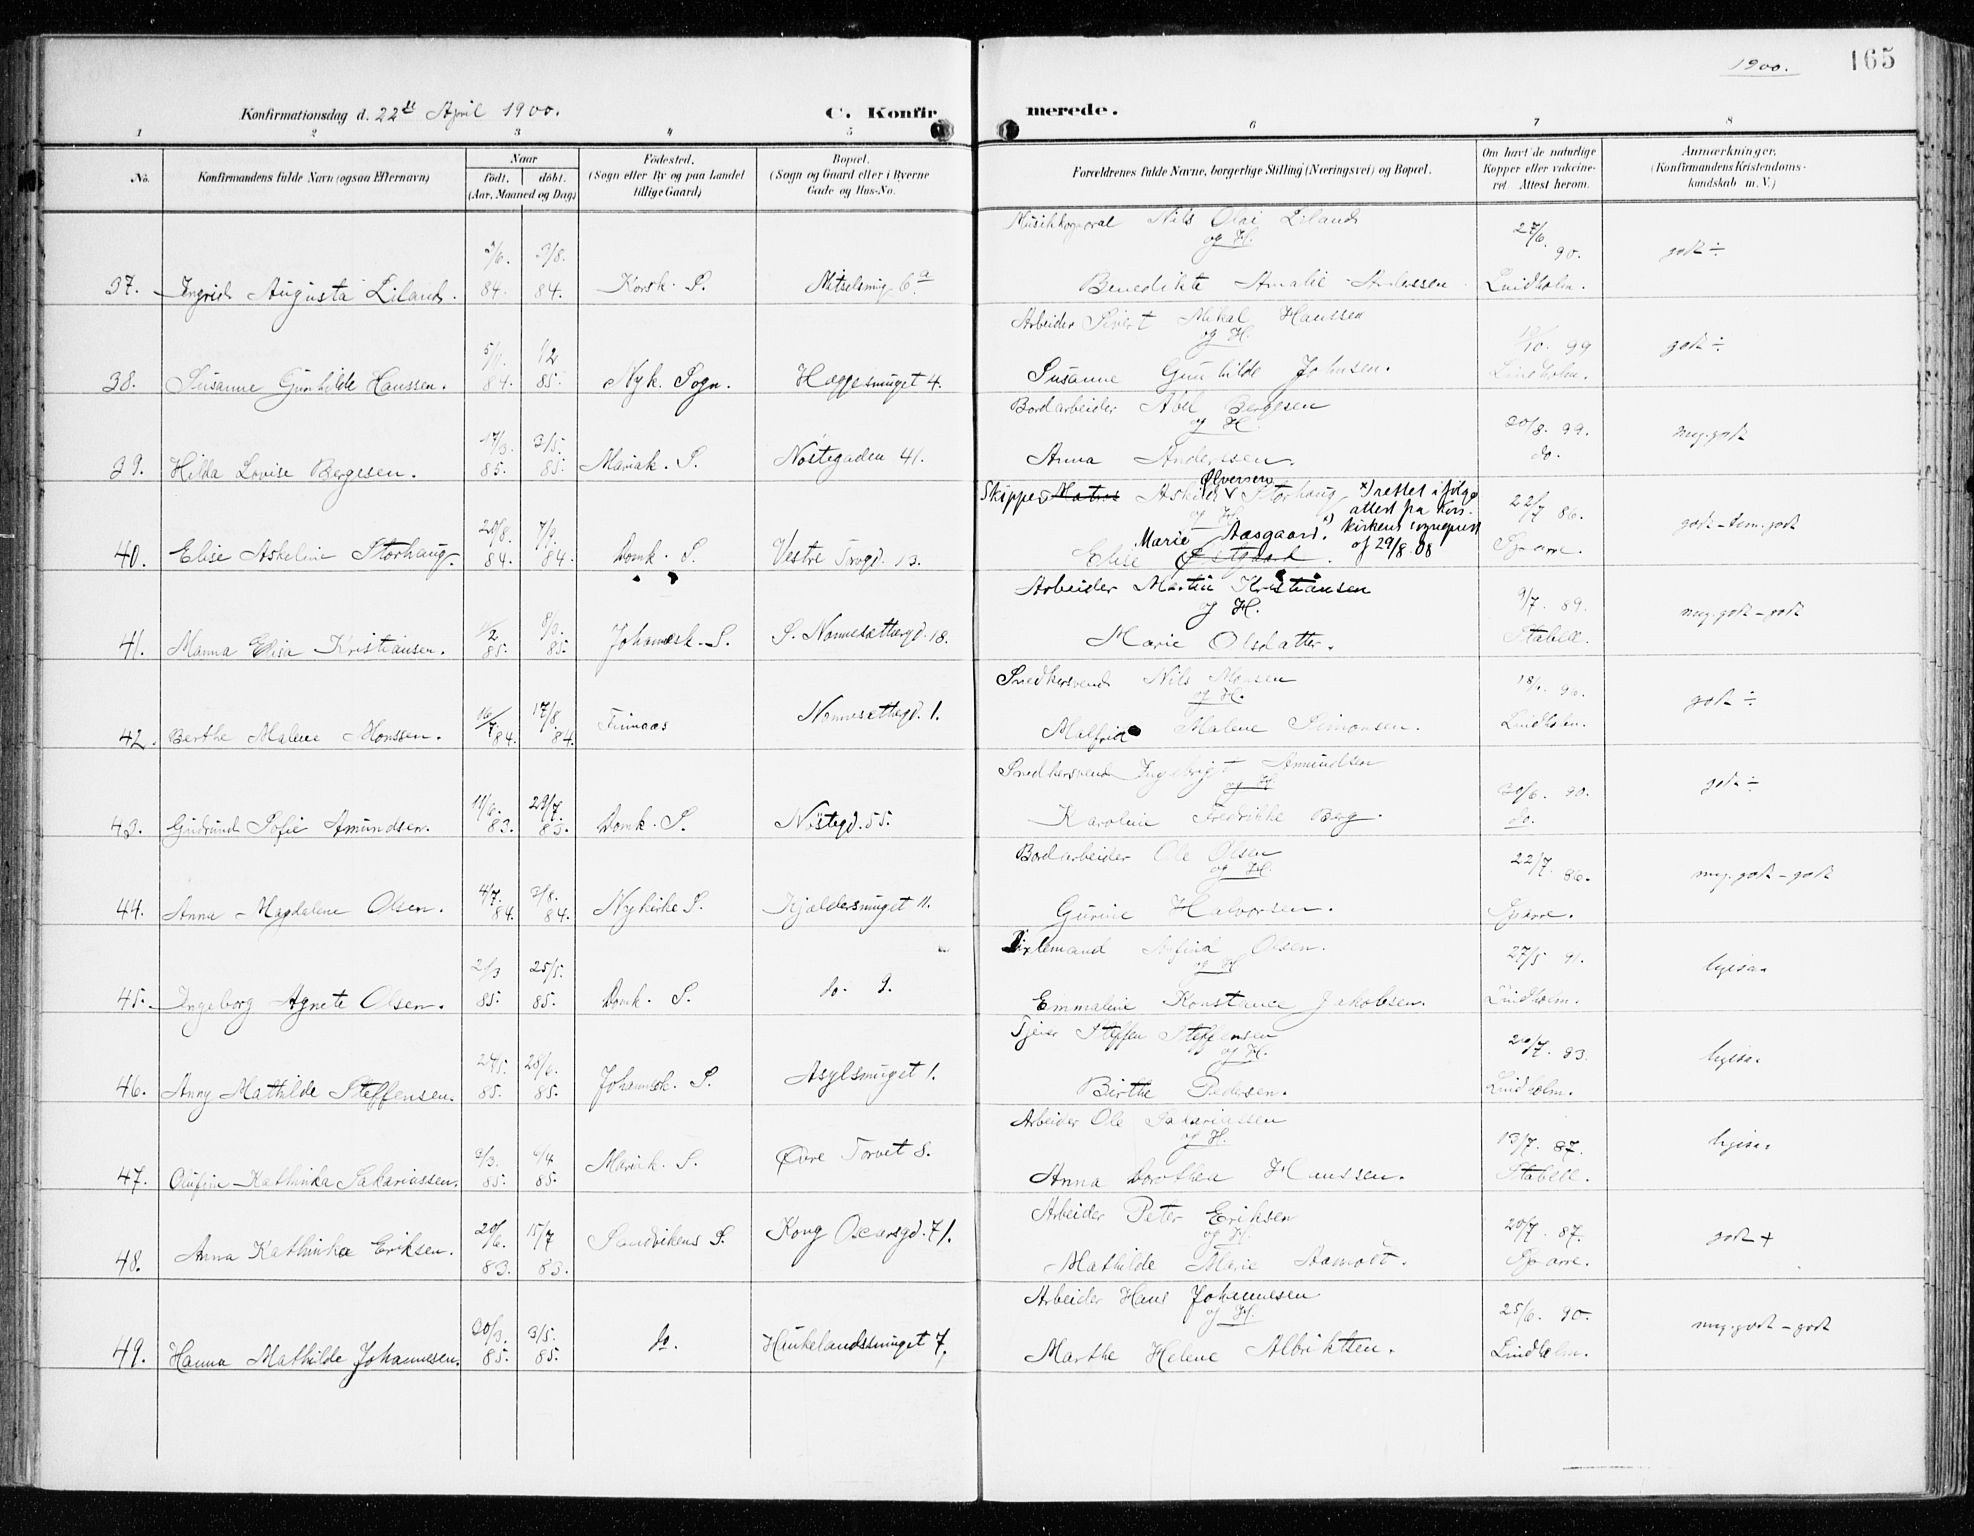 1900. 165
Konfirmationsdag d. 22de April 1900. C. Konfirmerede.
1 2 3 4 5 6 7 8
No. Konfirmandens fulde Navn (ogsaa Efternavn) Naar født. døbt. (Aar, Maaned og Dag) Fødested. (Sogn eller By og paa Landet tillige Gaard) Bopæl. (Sogn og Gaard eller i Byerne Gade og Hus-No. Forældrenes fulde Navne, borgerlige Stilling (Næringsvei) og Bopæl. Om havt de naturlige Kopper eller vakcineret. Attest herom. Anmærkninger. (Konfirmandens Kristendomskundskab m. V.)
Musikkorporal Nils Olai Liland
og H.
37. Ingrid Augusta Liland. 3/8. 84. 84. Korsk. S. 6a Benedikte Amalie Anderssen 27/6. 90. Lindholm. godt ÷
Arbeider Sivert Mikal Hanssen
og H.
38. Susanne Gunhilde Hanssen. 84. 85. Nyk. Sogn. Heggesmuget 4. Susanne Gunhilde Johnsen. 99 Lindholm. godt ÷
Bordarbeider Abel Bergesen
og H.
39. Hilda Lovise Bergesen. 17/3. 85. 3/5. 85. Mariak. S. Nøstegaden 41. Anna Andersen. 20/8. 99. do. meg. godt
Ølversen
Skipper Matros Askild Storhaug x) rettet ifølge
og H. attest fra Kors-
Marie Aasgaard. x) kirkens sogneprest
af 29/8.08
40. Elise Askeline Storhaug. 84. 7/9. 84. Domk. S. Vestre Torvgd. 13. Elise 22/7 86. Sparre. godt - tem. godt
Arbeider Martin Kristiansen
og H.
41. Manna Elisa Kristiansen. 85. 85. Johannesk. S. S. Nonnesættergd. 18. Marie Olsdatter. 9/7. 89. Stabell. meg. godt - godt
Snedkersvend Nils Monsen
og H.
42. Berthe Malene Monssen. 16/7 84. 17/8 84. Finnaas Nonnesættergd. 1. Malfrid Malene Simonsen. Lindholm. godt ÷
Snedkersvend Ingebrigt Amundsen
og H.
43. Gudrund Sofie Amundsen. 83. 29/7. 83. Domk. S. Nøstegd. 55. Karoline Fredrikke Berg. 30/6. 90. do. godt ÷
Bordarbeider Ole Olsen
og H.
44. Anna Magdalene Olsen. 4/7. 84. 3/8. 84. Nykirke S. Kjeldersmuget 11. Gurine Halvorsen. 22/7. 86. Sparre. meg. godt - godt
Olsen.
og H
45. Ingeborg Agnete Olsen. 2/3 85. 25/5. 85. Domk. S. do. 9. Emmaline Konstance Jakobsen. 27/5 91. Lindholm. ligesaa
Steffen Steffensen
og H.
46. Anny Mathilde Steffensen. 24/5. 85. 28/6. 85. Johannesk. S. Asylsmuget 1. Birthe Pedersen. 93. Lindholm. ligesaa
Arbeider Ole Sakariassen
og H.
47. Olufine Kathinka Sakariassen. 85. 85. Mariak. S. Øvre Torvet 8. Anna Dorothea Hanssen. 13/7. 87. Stabell. ligesaa
Arbeider Peter Eriksen
og H.
48. Anna Kathinka Eriksen. 83. 15/7 83. Sandvikens S. Kong Oscarsgd. 71. Mathilde Marie Aamodt. 20/7. 87. Sparre. godt +
Arbeider Hans Johannesen
og H.
49. Hanna Mathilde Johannesen. 30/3. 85. 3/5. 85. do. Haukelandssmuget 7, Marthe Helene Albriktsen. 25/6. 90. Lindholm. meg. godt - godt